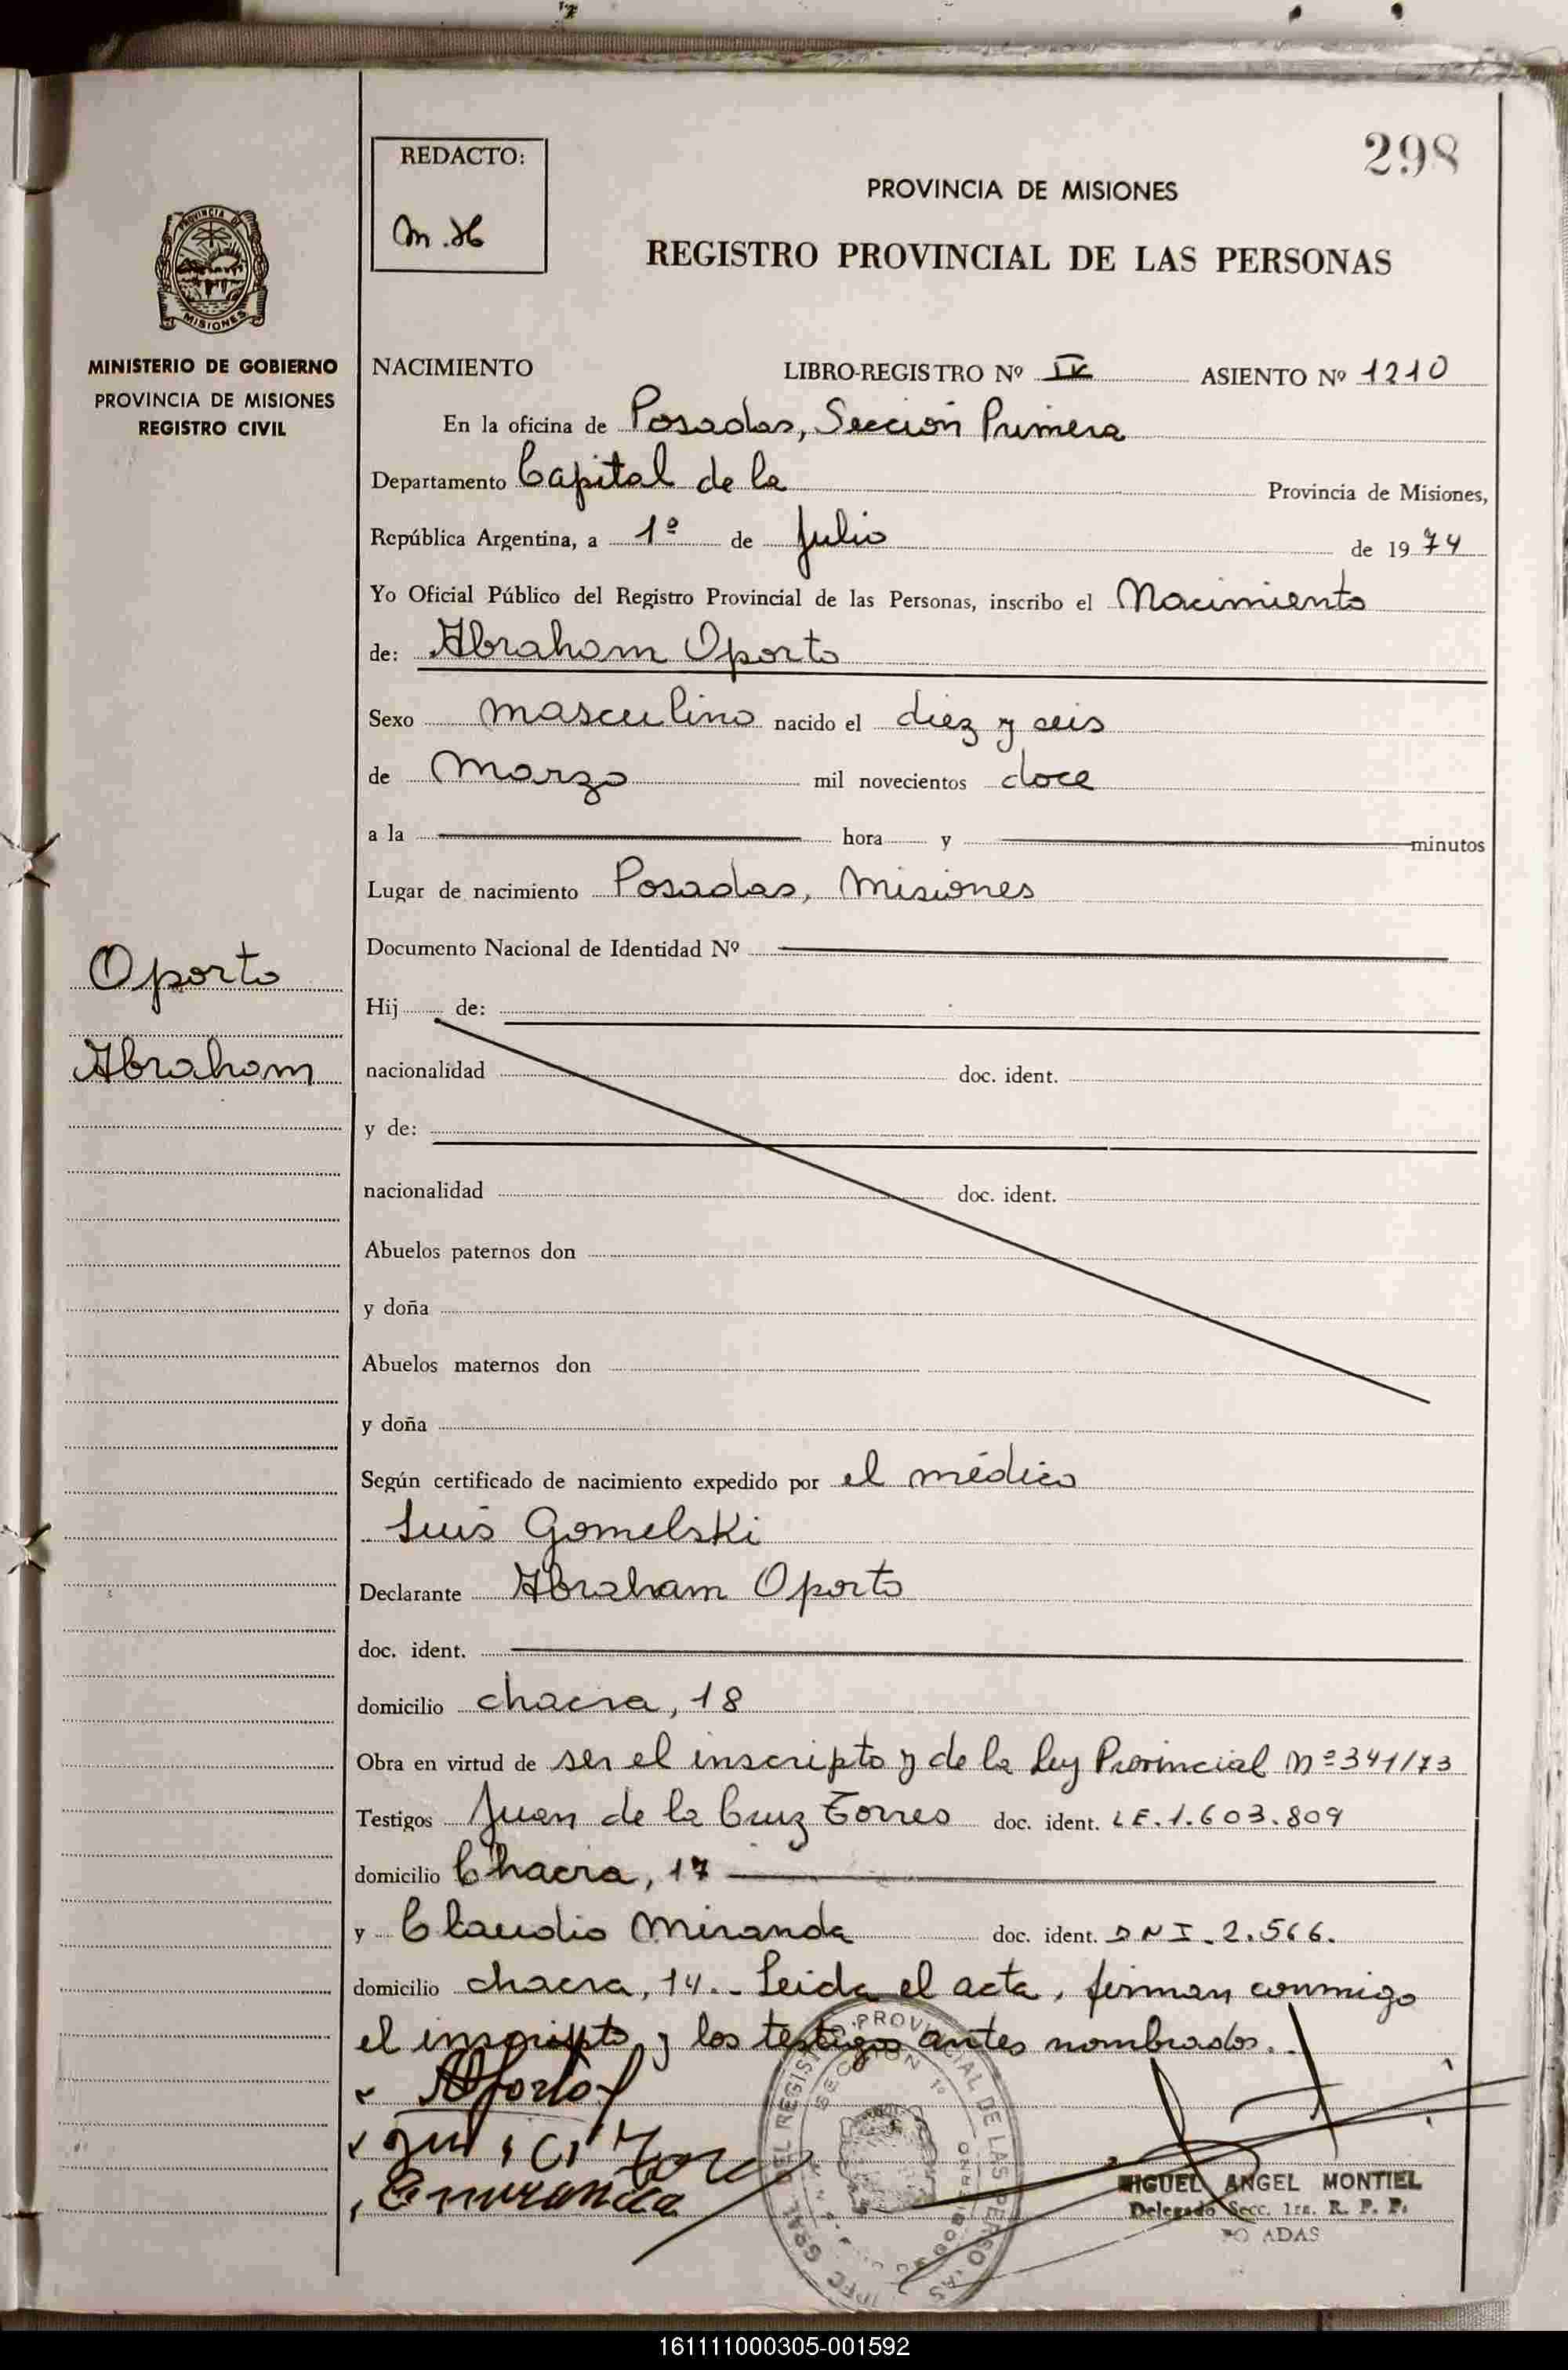 298
REDACTO:
M.H
PROVINCIA DE MISIONES
REGISTRO PROVINCIAL DE LAS PERSONAS
PROVINCIA DE
MISIONES
MINISTERIO DE GOBIERNO
PROVINCIA DE MISIONES
REGISTRO CIVIL
NACIMIENTO LIBRO-REGISTRO Nº IV ASIENTO Nº 1210
En la oficina de Posadas, Sección Primera
Departamento Capital de la Provincia de Misiones,
República Argentina, a 1º de Julio de 1974
Yo Oficial Público del Registro Provincial de las Personas, inscribo el Nacimiento
de: Abraham Oporto
Sexo masculino nacido el diez y seis
de Marzo mil novecientos doce
a la hora y minutos
Lugar de nacimiento Posadas, Misiones
Documento Nacional de Identidad Nº
Oporto
Abraham
Hij de:
nacionalidad doc. ident.
y de:
nacionalidad doc. ident.
Abuelos paternos don
y doña
Abuelos maternos don
y doña
Según certificado de nacimiento expedido por el médico
Luis Gomelski
Declarante Abraham Oporto
doc. ident.
domicilio chacra, 18
Obra en virtud de ser el inscripto y de la Ley Provincial Nº 341/73
Testigos Juan de la Cruz Torres doc. ident. LE.1.603.809
domicilio Chacra, 17
y Claudio Miranda doc. ident. DNI. 2.566.
domicilio chacra, 14.- Leida el acta, firman conmigo
el inscripto y los testigos antes nombrados.
MIGUEL ANGEL MONTIEL
Delegado Secc. 1ra. R. P. P.
POSADAS
161111000305-001592